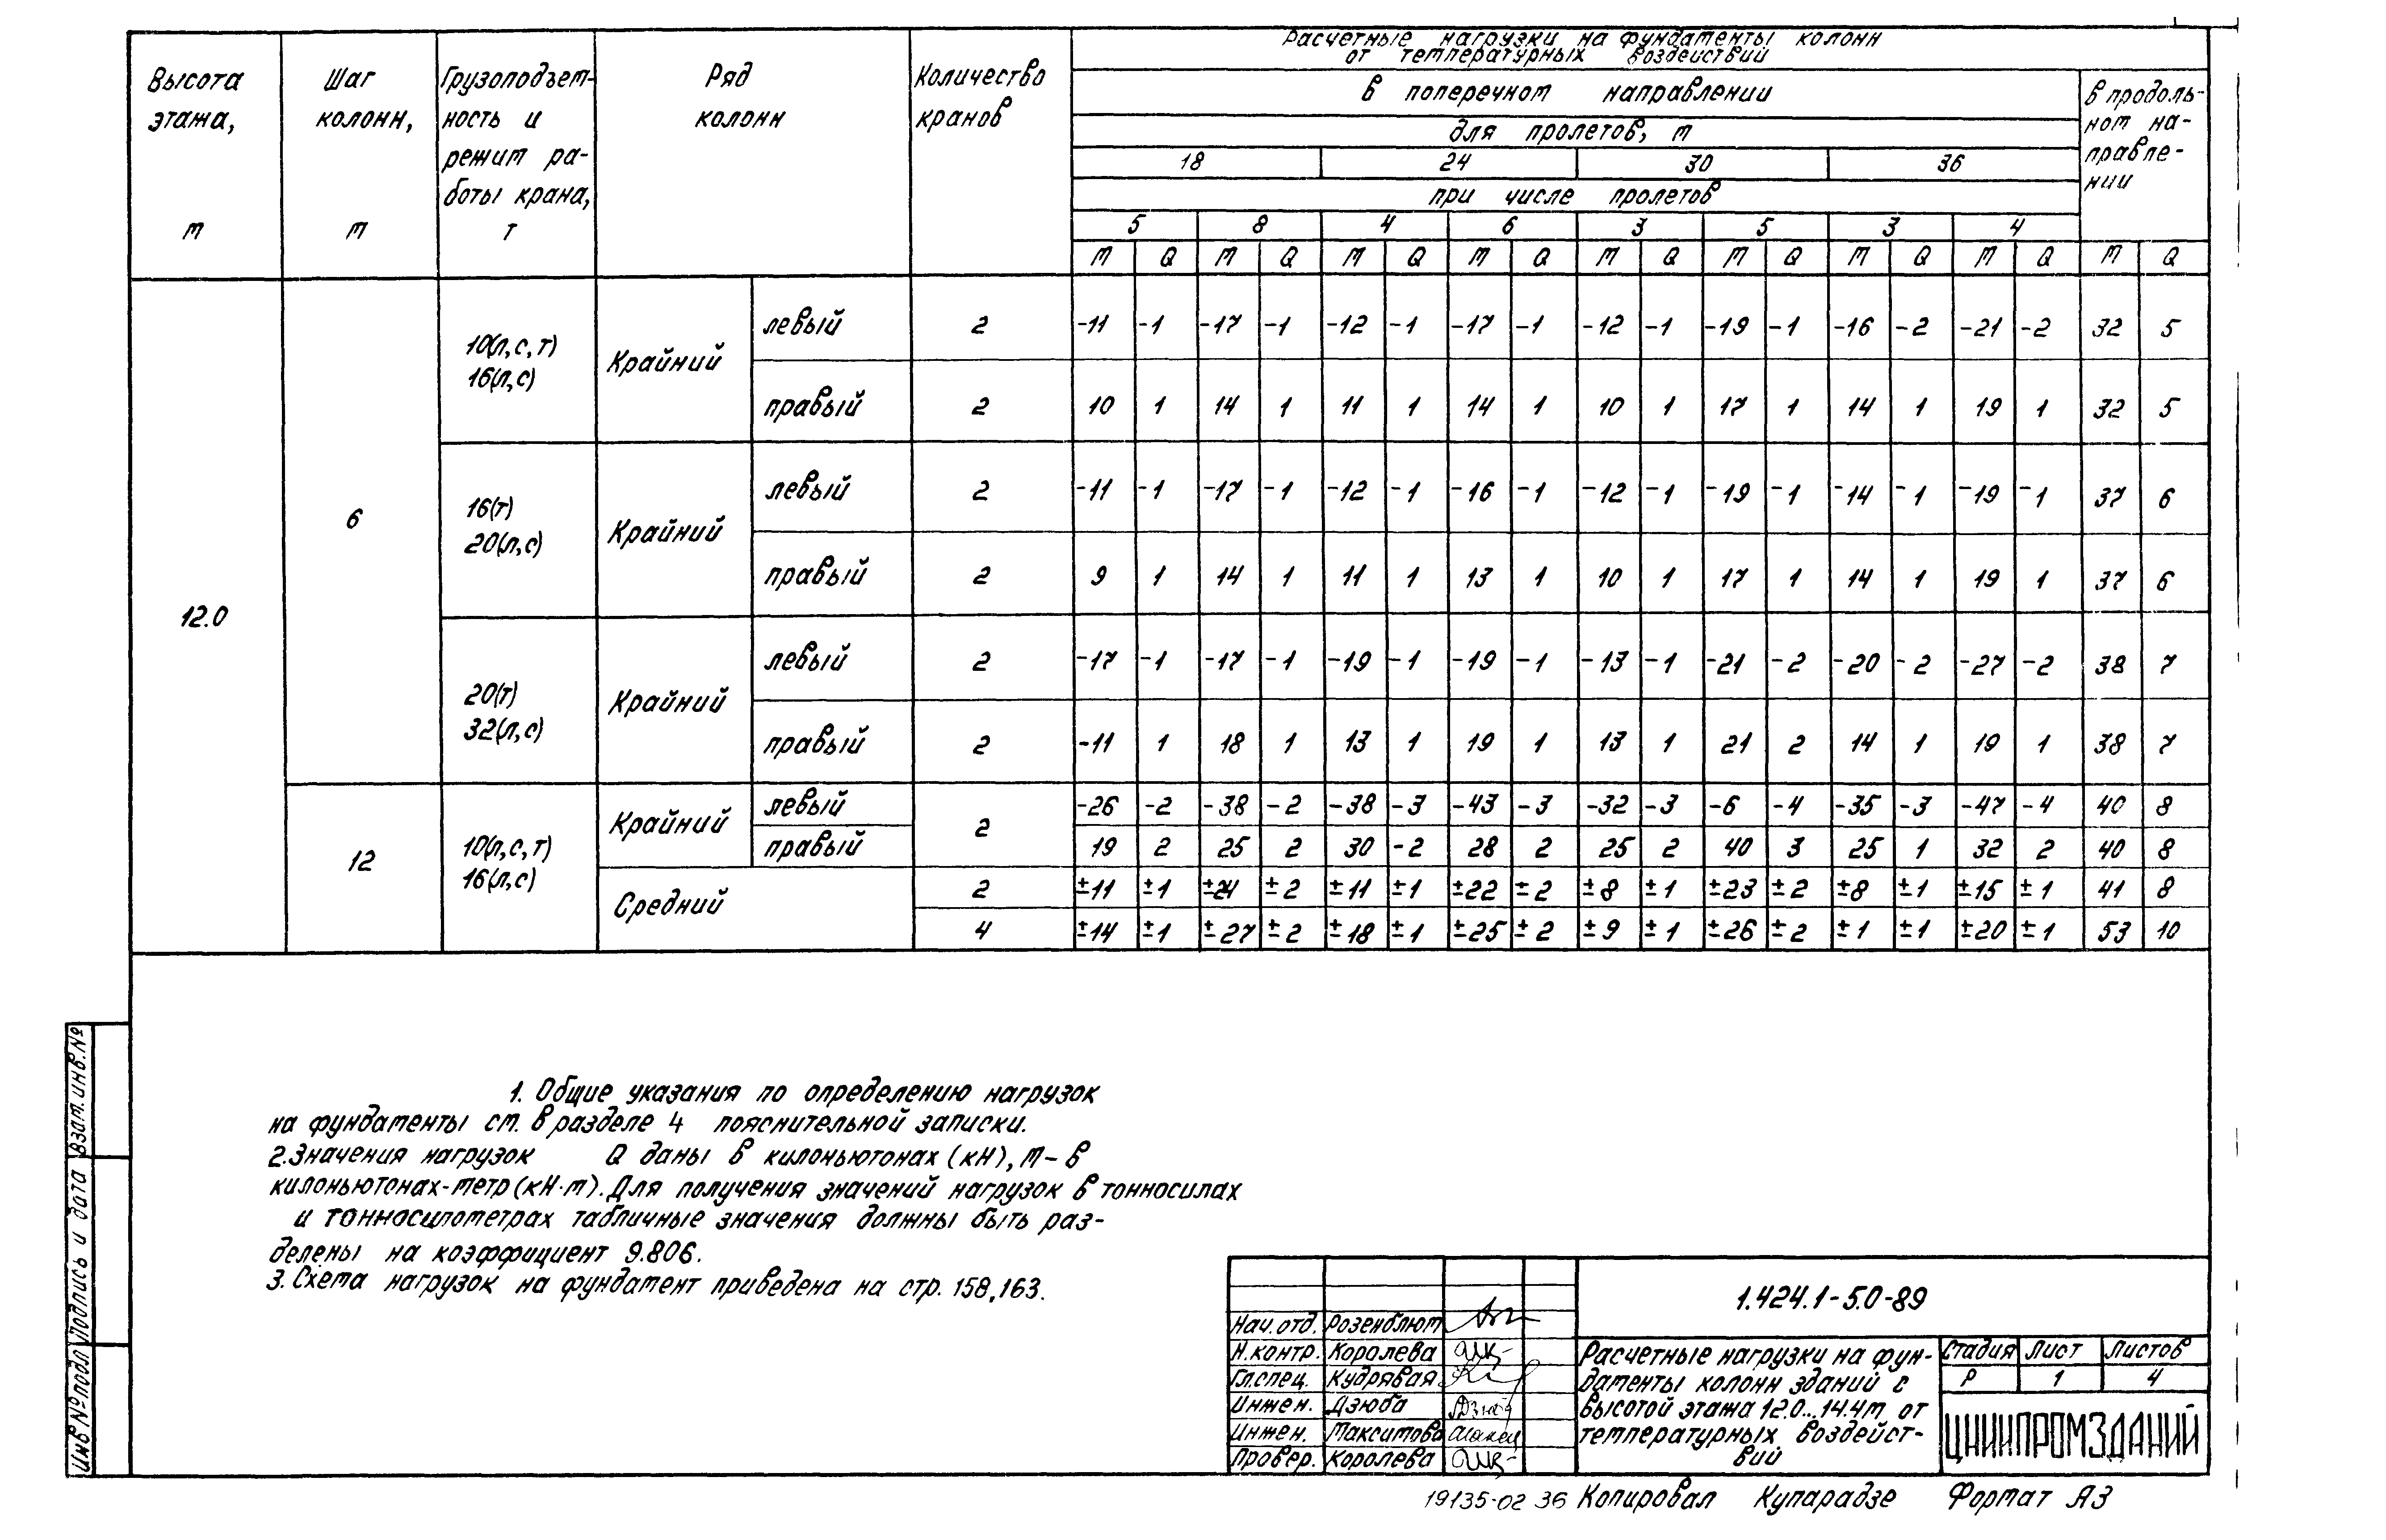 Расчетные нагрузки на фундаменты колонн
от температурных воздействий
Высота этажа, м
Шаг колонн, м
Грузоподъем-
ность и
режим ра-
боты крана,
т
Ряд колонн
Количество кранов
в поперечном направлении
в продоль-
ном на-
правле-
нии
для пролетов, м
18 24 30 36
при числе пролетов
5 8 4 6 3 5 3 4
М Q М Q М Q М Q М Q М Q М Q М Q М Q
12.0
6
10(л,с,т)
16(л,с)
Крайний
левый 2 -11 -1 -17 -1 -12 -1 -17 -1 -12 -1 -19 -1 -16 -2 -21 -2 32 5
правый 2 10 1 14 1 11 1 14 1 10 1 17 1 14 1 19 1 32 5
16(т)
20(л,с)
Крайний
левый 2 -11 -1 -17 -1 -12 -1 -16 -1 -12 -1 -19 -1 -14 -1 -19 -1 37 6
правый 2 9 1 14 1 11 1 13 1 10 1 17 1 14 1 19 1 37 6
20(т)
32(л,с)
Крайний
левый 2 -17 -1 -17 -1 -19 -1 -19 -1 -13 -1 -21 -2 -20 -2 -27 -2 38 7
правый 2 -11 1 18 1 13 1 19 1 13 1 21 2 14 1 19 1 38 7
12
10(л,с,т)
16(л,с)
Крайний
2
левый -26 -2 -38 -2 -38 -3 -43 -3 -32 -3 -6 -4 -35 -3 -47 -4 40 8
правый 19 2 25 2 30 -2 28 2 25 2 40 3 25 1 32 2 40 8
Средний
2 ±11 ±1 ±24 ±2 ±11 ±1 ±22 ±2 ±8 ±1 ±23 ±2 ±8 ±1 ±15 ±1 41 8
4 ±14 ±1 ±27 ±2 ±18 ±1 ±25 ±2 ±9 ±1 ±26 ±2 ±1 ±1 ±20 ±1 53 10
1. Общие указания по определению нагрузок
на фундаменты см. в разделе 4 пояснительной записки.
2. Значения нагрузок Q даны в килоньютонах (кН), М - в
килоньютонах-метр (кН·м). Для получения значений нагрузок в тонносилах
и тонносилометрах табличные значения должны быть раз-
делены на коэффициент 9.806.
3. Схема нагрузок на фундамент приведена на стр. 158,163.
Взам. инв. №
Подпись и дата
Инв № подл
Нач. отд. Розенблюм
Н. контр. Королева
Гл.спец. Кудрявая
Инжен. Дзюба
Инжен. Максимова
Провер. Королева
1.424.1-5.0-89
Расчетные нагрузки на фун-
даменты колонн зданий с
высотой этажа 12.0...14.4м от
температурных воздейст-
вий
Стадия Лист Листов
Р 1 4
ЦНИИПРОМЗДАНИЙ
19135-02 36 Копировал Купарадзе Формат А3